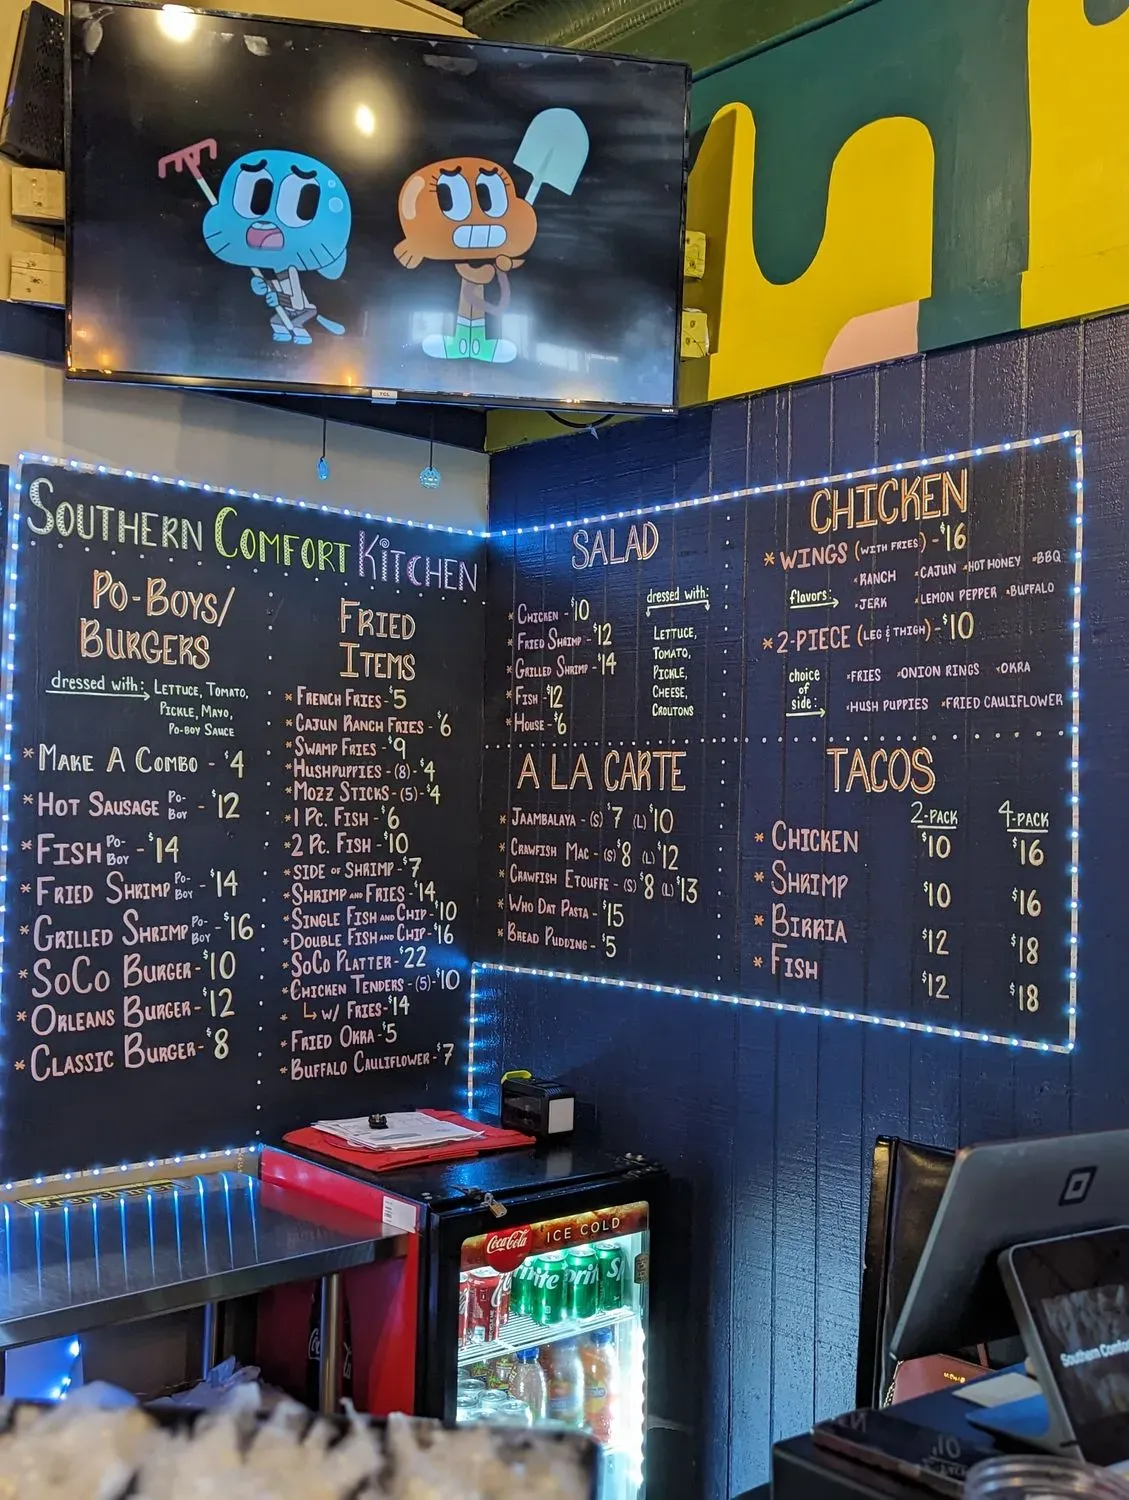 TCL
SOUTHERN COMFORT KITCHEN
PO-BOYS/
BURGERS
dressed with: LETTUCE, TOMATO,
PICKLE, MAYO,
PO-BOY SAUCE
* MAKE A COMBO - $4
* HOT SAUSAGE PO-BOY - $12
* FISH PO-BOY - $14
* FRIED SHRIMP PO-BOY - $14
* GRILLED SHRIMP PO-BOY - $16
* SOCO BURGER - $10
* ORLEANS BURGER - $12
* CLASSIC BURGER - $8
FRIED
ITEMS
* FRENCH FRIES - $5
* CAJUN RANCH FRIES - $6
* SWAMP FRIES - $9
* HUSHPUPPIES - (8) - $4
* MOZZ STICKS - (5) - $4
* 1 PC. FISH - $6
* 2 PC. FISH - $10
* SIDE OF SHRIMP - $7
* SHRIMP AND FRIES - $14
* SINGLE FISH AND CHIP - $10
* DOUBLE FISH AND CHIP - $16
* SOCO PLATTER - $22
* CHICKEN TENDERS - (5) - $10
* ↳ W/ FRIES - $14
* FRIED OKRA - $5
* BUFFALO CAULIFLOWER - $7
SALAD
* CHICKEN - $10
* FRIED SHRIMP - $12
* GRILLED SHRIMP - $14
* FISH - $12
* HOUSE - $6
dressed with:
LETTUCE,
TOMATO,
PICKLE,
CHEESE,
CROUTONS
A LA CARTE
* JAAMBALAYA - (S) $7 (L) $10
* CRAWFISH MAC - (S) $8 (L) $12
* CRAWFISH ETOUFFE - (S) $8 (L) $13
* WHO DAT PASTA - $15
* BREAD PUDDING - $5
CHICKEN
* WINGS (WITH FRIES) - $16
flavors: *RANCH *CAJUN *HOT HONEY *BBQ
*JERK *LEMON PEPPER *BUFFALO
* 2-PIECE (LEG & THIGH) - $10
choice of side: *FRIES *ONION RINGS *OKRA
*HUSH PUPPIES *FRIED CAULIFLOWER
TACOS
2-PACK 4-PACK
* CHICKEN $10 $16
* SHRIMP $10 $16
* BIRRIA $12 $18
* FISH $12 $18
Coca-Cola ICE COLD
Sprite
Southern Comfort